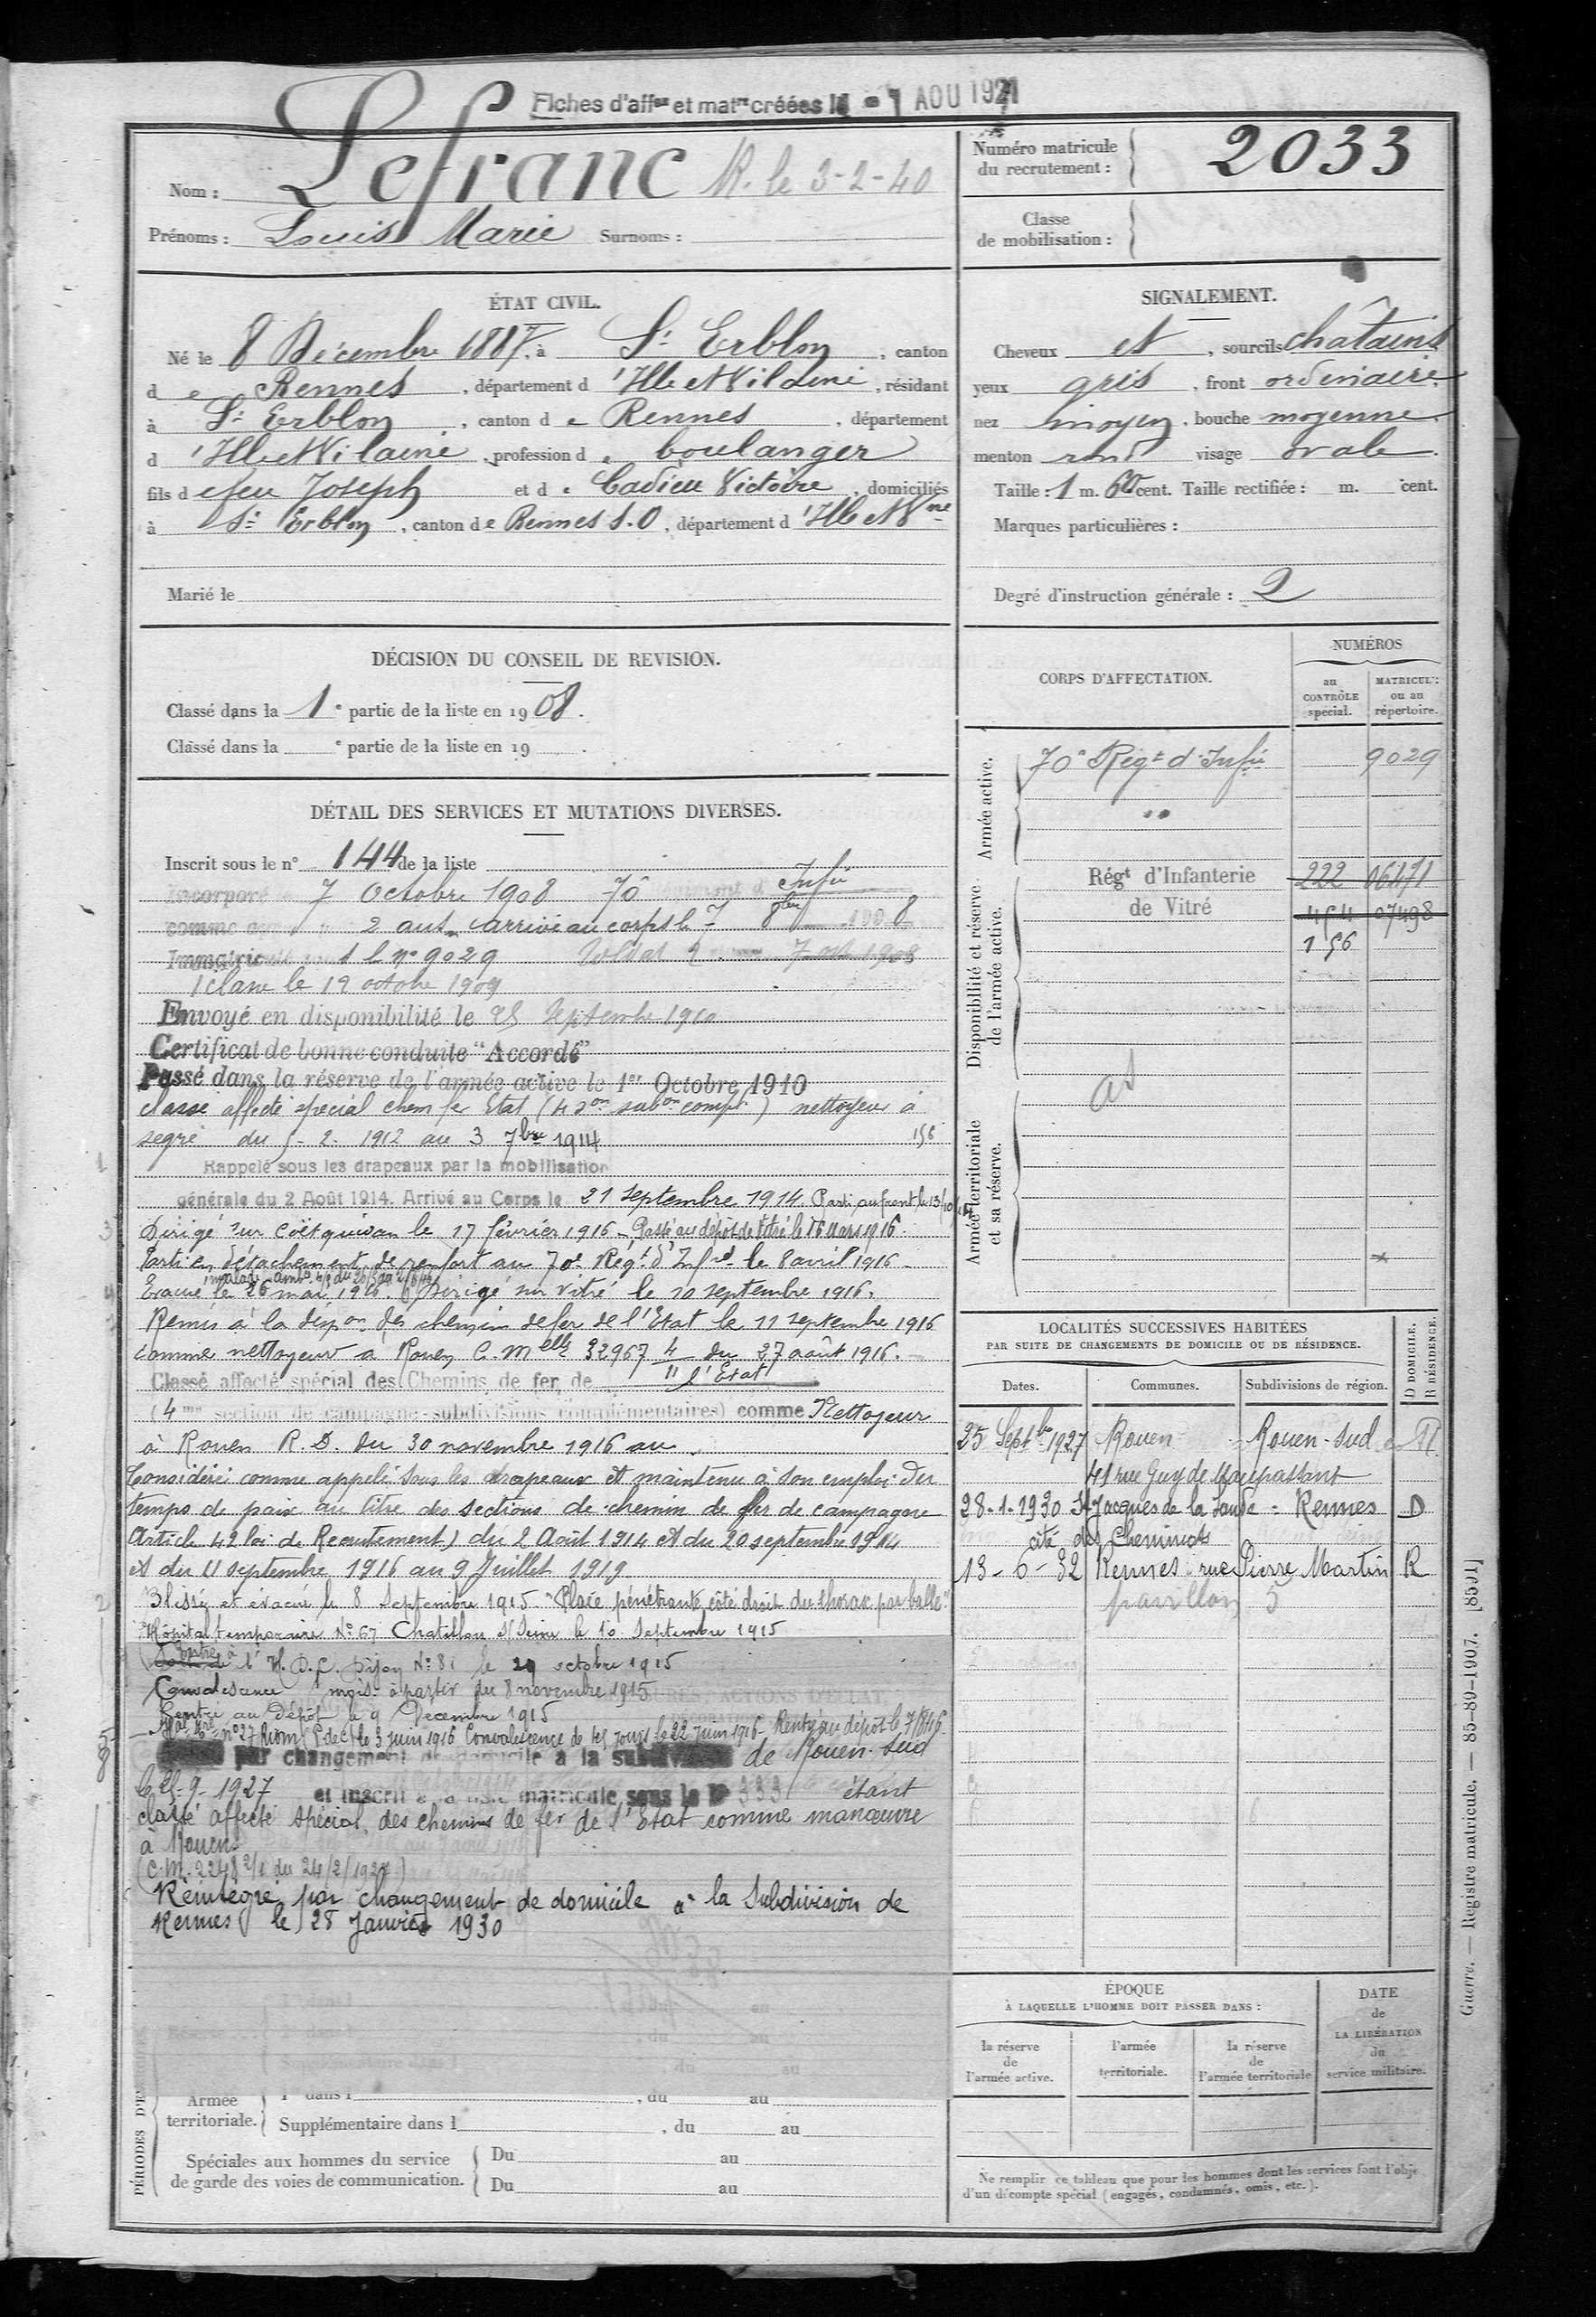 Fiches d'affon et matre créées le - 1 AOU 1921
Nom : Lefranc R. le 3-2-40
Prénoms : Louis Marie Surnoms :
Numéro matricule
du recrutement : 2033
Classe
de mobilisation :
ÉTAT CIVIL.
Né le 8 Décembre 1887, à St Erblon, canton
de Rennes, département d'Ille et Vilaine, résidant
à St Erblon, canton de Rennes, département
d'Ille et Vilaine, profession de boulanger
fils de feu Joseph et de Cadieu Victoire, domiciliés
à St Erblon, canton de Rennes S.O, département d'Ille et Vne
Marié le
SIGNALEMENT.
Cheveux et, sourcils châtains
yeux gris, front ordinaire
nez moyen, bouche moyenne
menton rond visage ovale
Taille : 1 m. 60 cent. Taille rectifiée : m. cent.
Marques particulières :
Degré d'instruction générale : 2
DÉCISION DU CONSEIL DE REVISION.
Classé dans la 1e partie de la liste en 1908.
Classé dans la e partie de la liste en 19 .
DÉTAIL DES SERVICES ET MUTATIONS DIVERSES.
Inscrit sous le n° 144 de la liste
Incorporé 7 Octobre 1908 70 Régiment d'Infie
comme 2 ans arrivé au corps le 7 8bre 1908
Immatriculé le n° 9029 Soldat 2 7 oct 1908
1 classe le 12 octobre 1909
Envoyé en disponibilité le 25 Septembre 1910
Certificat de bonne conduite "Accordé"
Passé dans la réserve de l'armée active le 1er Octobre 1910
classé affecté spécial chem fer Etat (4 Son subon compt) nettoyeur à
segré du 5-2-1912 au 3 7bre 1914 156
1 Rappelé sous les drapeaux par la mobilisation
générale du 2 Août 1914. Arrivé au Corps le 21 septembre 1914. Parti au front le 13/10/
3 Dirigé sur Coëtquidan le 17 février 1916 - Passé au dépôt de Vitré le 16 mars 1916.
Parti en détachement de renfort au 70e Régt d'Infrie le 8 avril 1916 -
4 Evacué le 26 mai 1916. Dirigé sur Vitré le 10 septembre 1916.
Remis à la dispon des chemins de fer de l'Etat le 11 septembre 1916
comme nettoyeur à Rouen C. Melle 32967 4/11 du 27 août 1916.
Classé affecté spécial des Chemins de fer de l'Etat
(4me section de campagne-subdivisions complémentaires) comme Nettoyeur
à Rouen R.D. du 30 novembre 1916 au
Considéré comme appelé sous les drapeaux et maintenu à son emploi du
temps de paix au titre des sections de chemin de fer de campagne
Article 42 loi de Recrutement) du 2 Août 1914 et du 20 septembre 1914
et du 11 septembre 1916 au 9 Juillet 1919
2 Blessé et évacué le 8 Septembre 1915. "Plaie pénétrante côté droit du thorax par balle"
Hôpital temporaire N° 67 Chatillon s/Seine le 10 Septembre 1915
Entré à l'H.D.C. Dijon N° 81 le 29 octobre 1915
Convalescence 1 mois à partir du 8 novembre 1915
Rentré au Dépôt le 9 Décembre 1915
5 Hal tre n° 37 Riom (P de C) le 3 juin 1916 Convalescence de 45 jours le 22 juin 1916 - Rentré au dépôt le 7/8/16
par changement de domicile à la subdivision de Rouen-Sud
le 25-9-1927 et inscrit à la liste matricule sous le N° 333 étant
classé affecté spécial des chemins de fer de l'Etat comme manœuvre
à Rouen
(C.M. 2248 2/1 du 24/2/1927)
Réintégré par changement de domicile à la Subdivision de
Rennes le 28 Janvier 1930
PÉRIODES D'
Armée territoriale. 1e dans 1 , du au
Supplémentaire dans 1 , du au
Spéciales aux hommes du service
de garde des voies de communication. Du au
Du au
CORPS D'AFFECTATION.
NUMÉROS
au CONTRÔLE spécial.
MATRICULE ou au répertoire.
Armée active.
70e Régt d'Infie 9029
Disponibilité et réserve
de l'armée active.
Régt d'Infanterie 222 06471
de Vitré 454 07498
156
as
Armée territoriale
et sa réserve.
LOCALITÉS SUCCESSIVES HABITÉES
PAR SUITE DE CHANGEMENTS DE DOMICILE OU DE RÉSIDENCE.
Dates. Communes. Subdivisions de région. D DOMICILE. R RÉSIDENCE.
25 Septbre 1927 Rouen Rouen-Sud
41 rue Guy de Maupassant
28-1-1930 St Jacques de la Lande - Rennes D
cité des Cheminots
13-6-32 Rennes rue Pierre Martin R
pavillon 5
ÉPOQUE
À LAQUELLE L'HOMME DOIT PASSER DANS :
la réserve de l'armée active.
l'armée territoriale.
la réserve de l'armée territoriale
DATE de LA LIBÉRATION du service militaire.
Ne remplir ce tableau que pour les hommes dont les services font l'obje
d'un décompte spécial (engagés, condamnés, omis, etc.).
Guerre. — Registre matricule. — 85-89-1907. [8591]